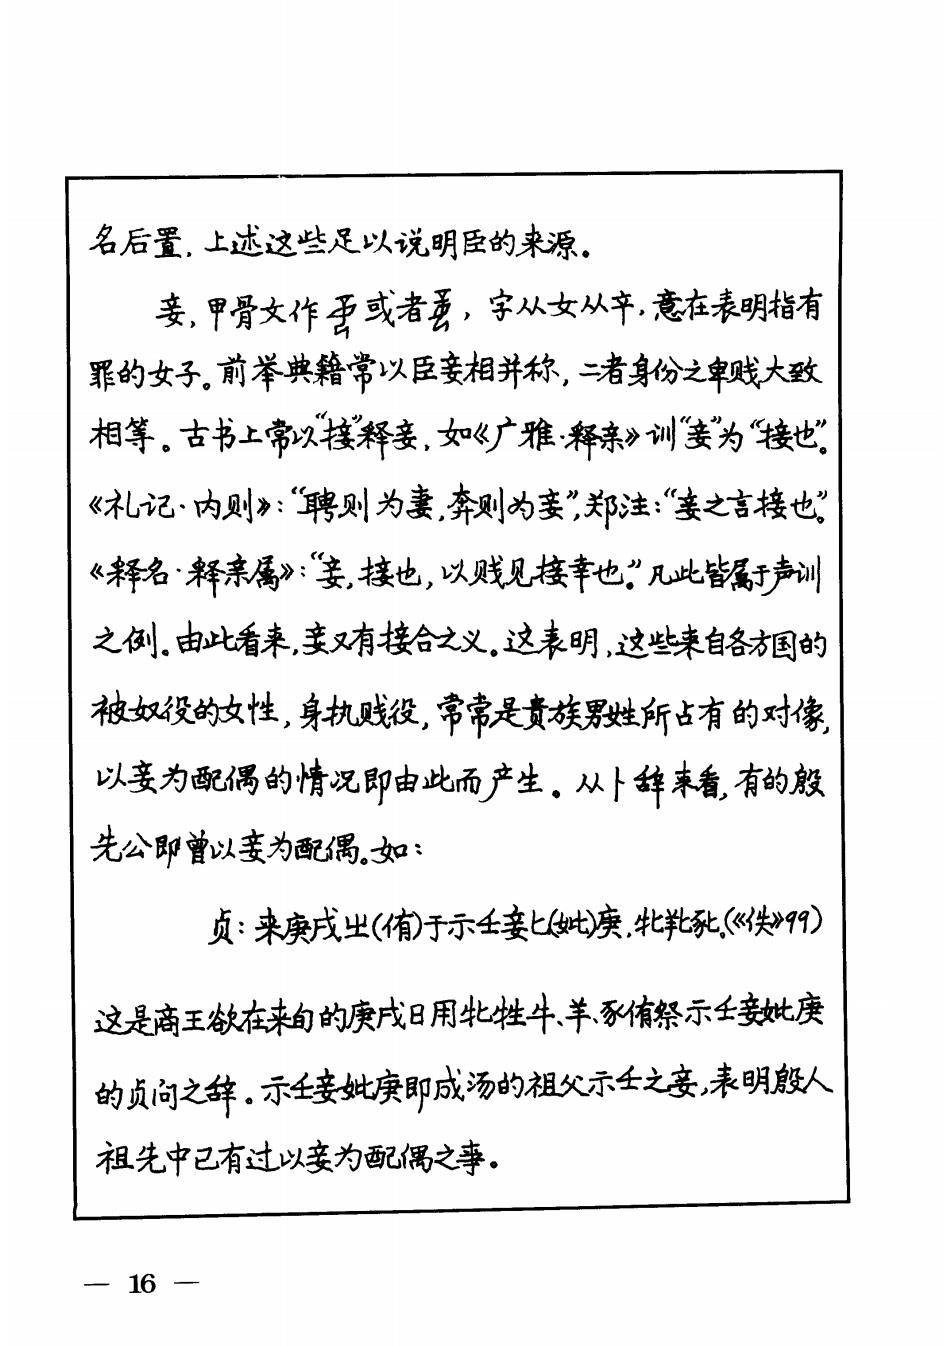 名后置，上述这些足以说明臣的来源。
妾，甲骨文作或者，字从女从辛，意在表明指有
罪的女子。前举典籍常以臣妾相并称，二者身份之卑贱大致
相等。古书上常以“接”释妾，如《广雅·释亲》训“妾”为“接也”。
《礼记·内则》：“聘则为妻，奔则为妾”，郑注：“妾之言接也。”
《释名·释亲属》：“妾，接也，以贱见接幸也。”凡此皆属于声训
之例。由此看来，妾又有接合之义。这表明，这些来自各方国的
被奴役的女性，身执贱役，常常是贵族男姓所占有的对像，
以妾为配偶的情况即由此而产生。从卜辞来看，有的殷
先公即曾以妾为配偶。如：
贞：来庚戌㞢(侑)于示壬妾匕(妣)庚，牝羘豝。(《佚》99)
这是商王欲在来旬的庚戌日用牝牲牛、羊、豕侑祭示壬妾妣庚
的贞问之辞。示壬妾妣庚即成汤的祖父示壬之妾，表明殷人
祖先中已有过以妾为配偶之事。
— 16 —